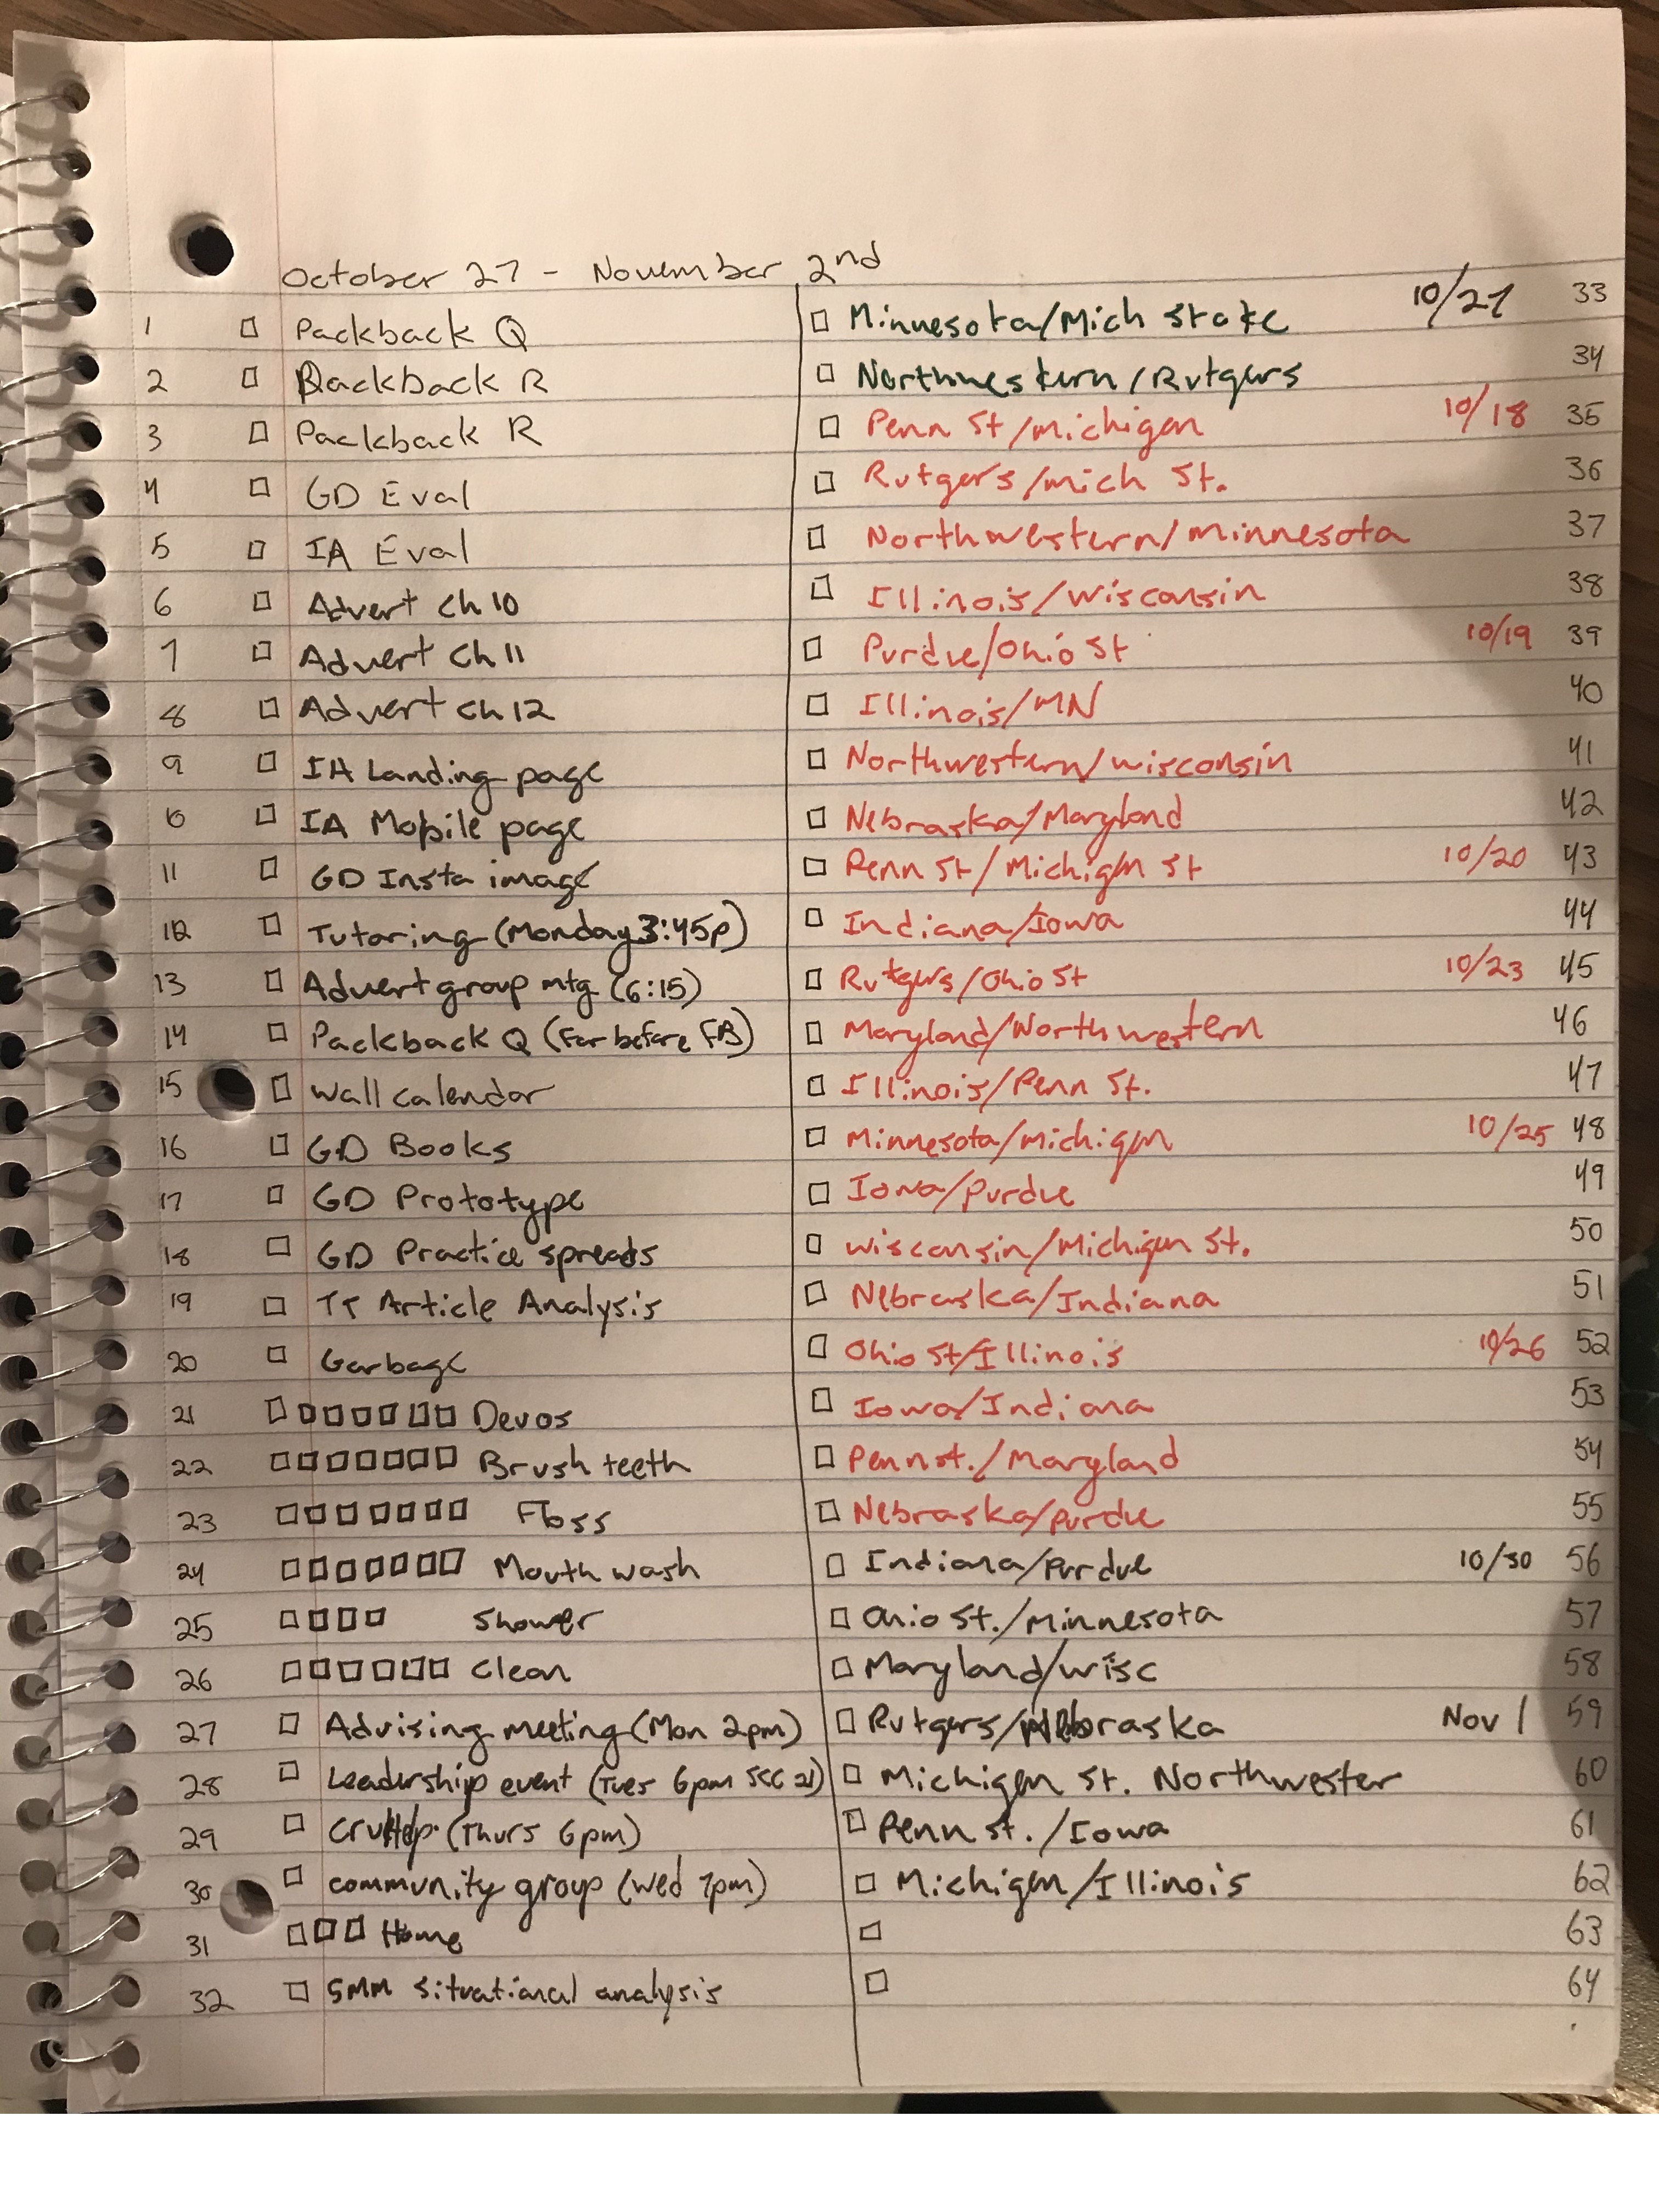 October 27 - November 2nd
1 Packback Q
2 Packback R
3 Packback R
4 GD Eval
5 IA Eval
6 Advert Ch 10
7 Advert Ch 11
8 Advert Ch 12
9 IA Landing page
10 IA Mobile page
11 GD Insta image
12 Tutoring (Monday 3:45p)
13 Advert group mtg (6:15)
14 Packback Q (For before FB)
15 Wall calendar
16 GD Books
17 GD Prototype
18 GD Practice spreads
19 TT Article Analysis
20 Garbage
21 Devos
22 Brush teeth
23 Floss
24 Mouth wash
25 Shower
26 Clean
27 Advising meeting (Mon 2pm)
28 Leadership event (Tues 6pm SCC 21)
29 (Thurs 6pm)
30 community group (Wed 7pm)
31 Home
32 SMM situational analysis
Minnesota/Mich State 10/27 33
Northwestern/Rutgers 34
Penn St/Michigan 10/18 35
Rutgers/Mich St. 36
Northwestern/Minnesota 37
Illinois/Wisconsin 38
Purdue/Ohio St 10/19 39
Illinois/MN 40
Northwestern/Wisconsin 41
Nebraska/Maryland 42
Penn St/Michigan St 10/20 43
Indiana/Iowa 44
Rutgers/Ohio St 10/23 45
Maryland/Northwestern 46
Illinois/Penn St. 47
Minnesota/Michigan 10/25 48
Iowa/Purdue 49
Wisconsin/Michigan St. 50
Nebraska/Indiana 51
Ohio St/Illinois 10/26 52
Iowa/Indiana 53
Penn St./Maryland 54
Nebraska/Purdue 55
Indiana/Purdue 10/30 56
Ohio St./Minnesota 57
Maryland/Wisc 58
Rutgers/Nebraska Nov 1 59
Michigan St. Northwester 60
Penn St./Iowa 61
Michigan/Illinois 62
63
64